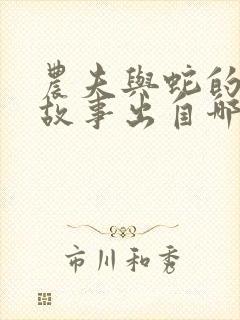 農夫與蛇的
故事出自哪
市川和秀